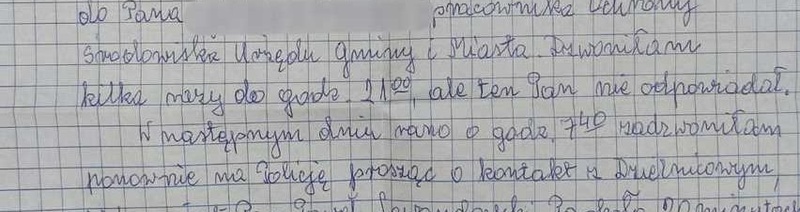 do Pana pracownika Ochrony
Środowiska Urzędu Gminy i Miasta. Dzwoniłam
kilka razy do godz. 21⁰⁰, ale ten Pan nie odpowiadał.
W następnym dniu rano o godz. 7⁴⁰ zadzwoniłam
ponownie na Policję prosząc o kontakt z Dzielnicowym,